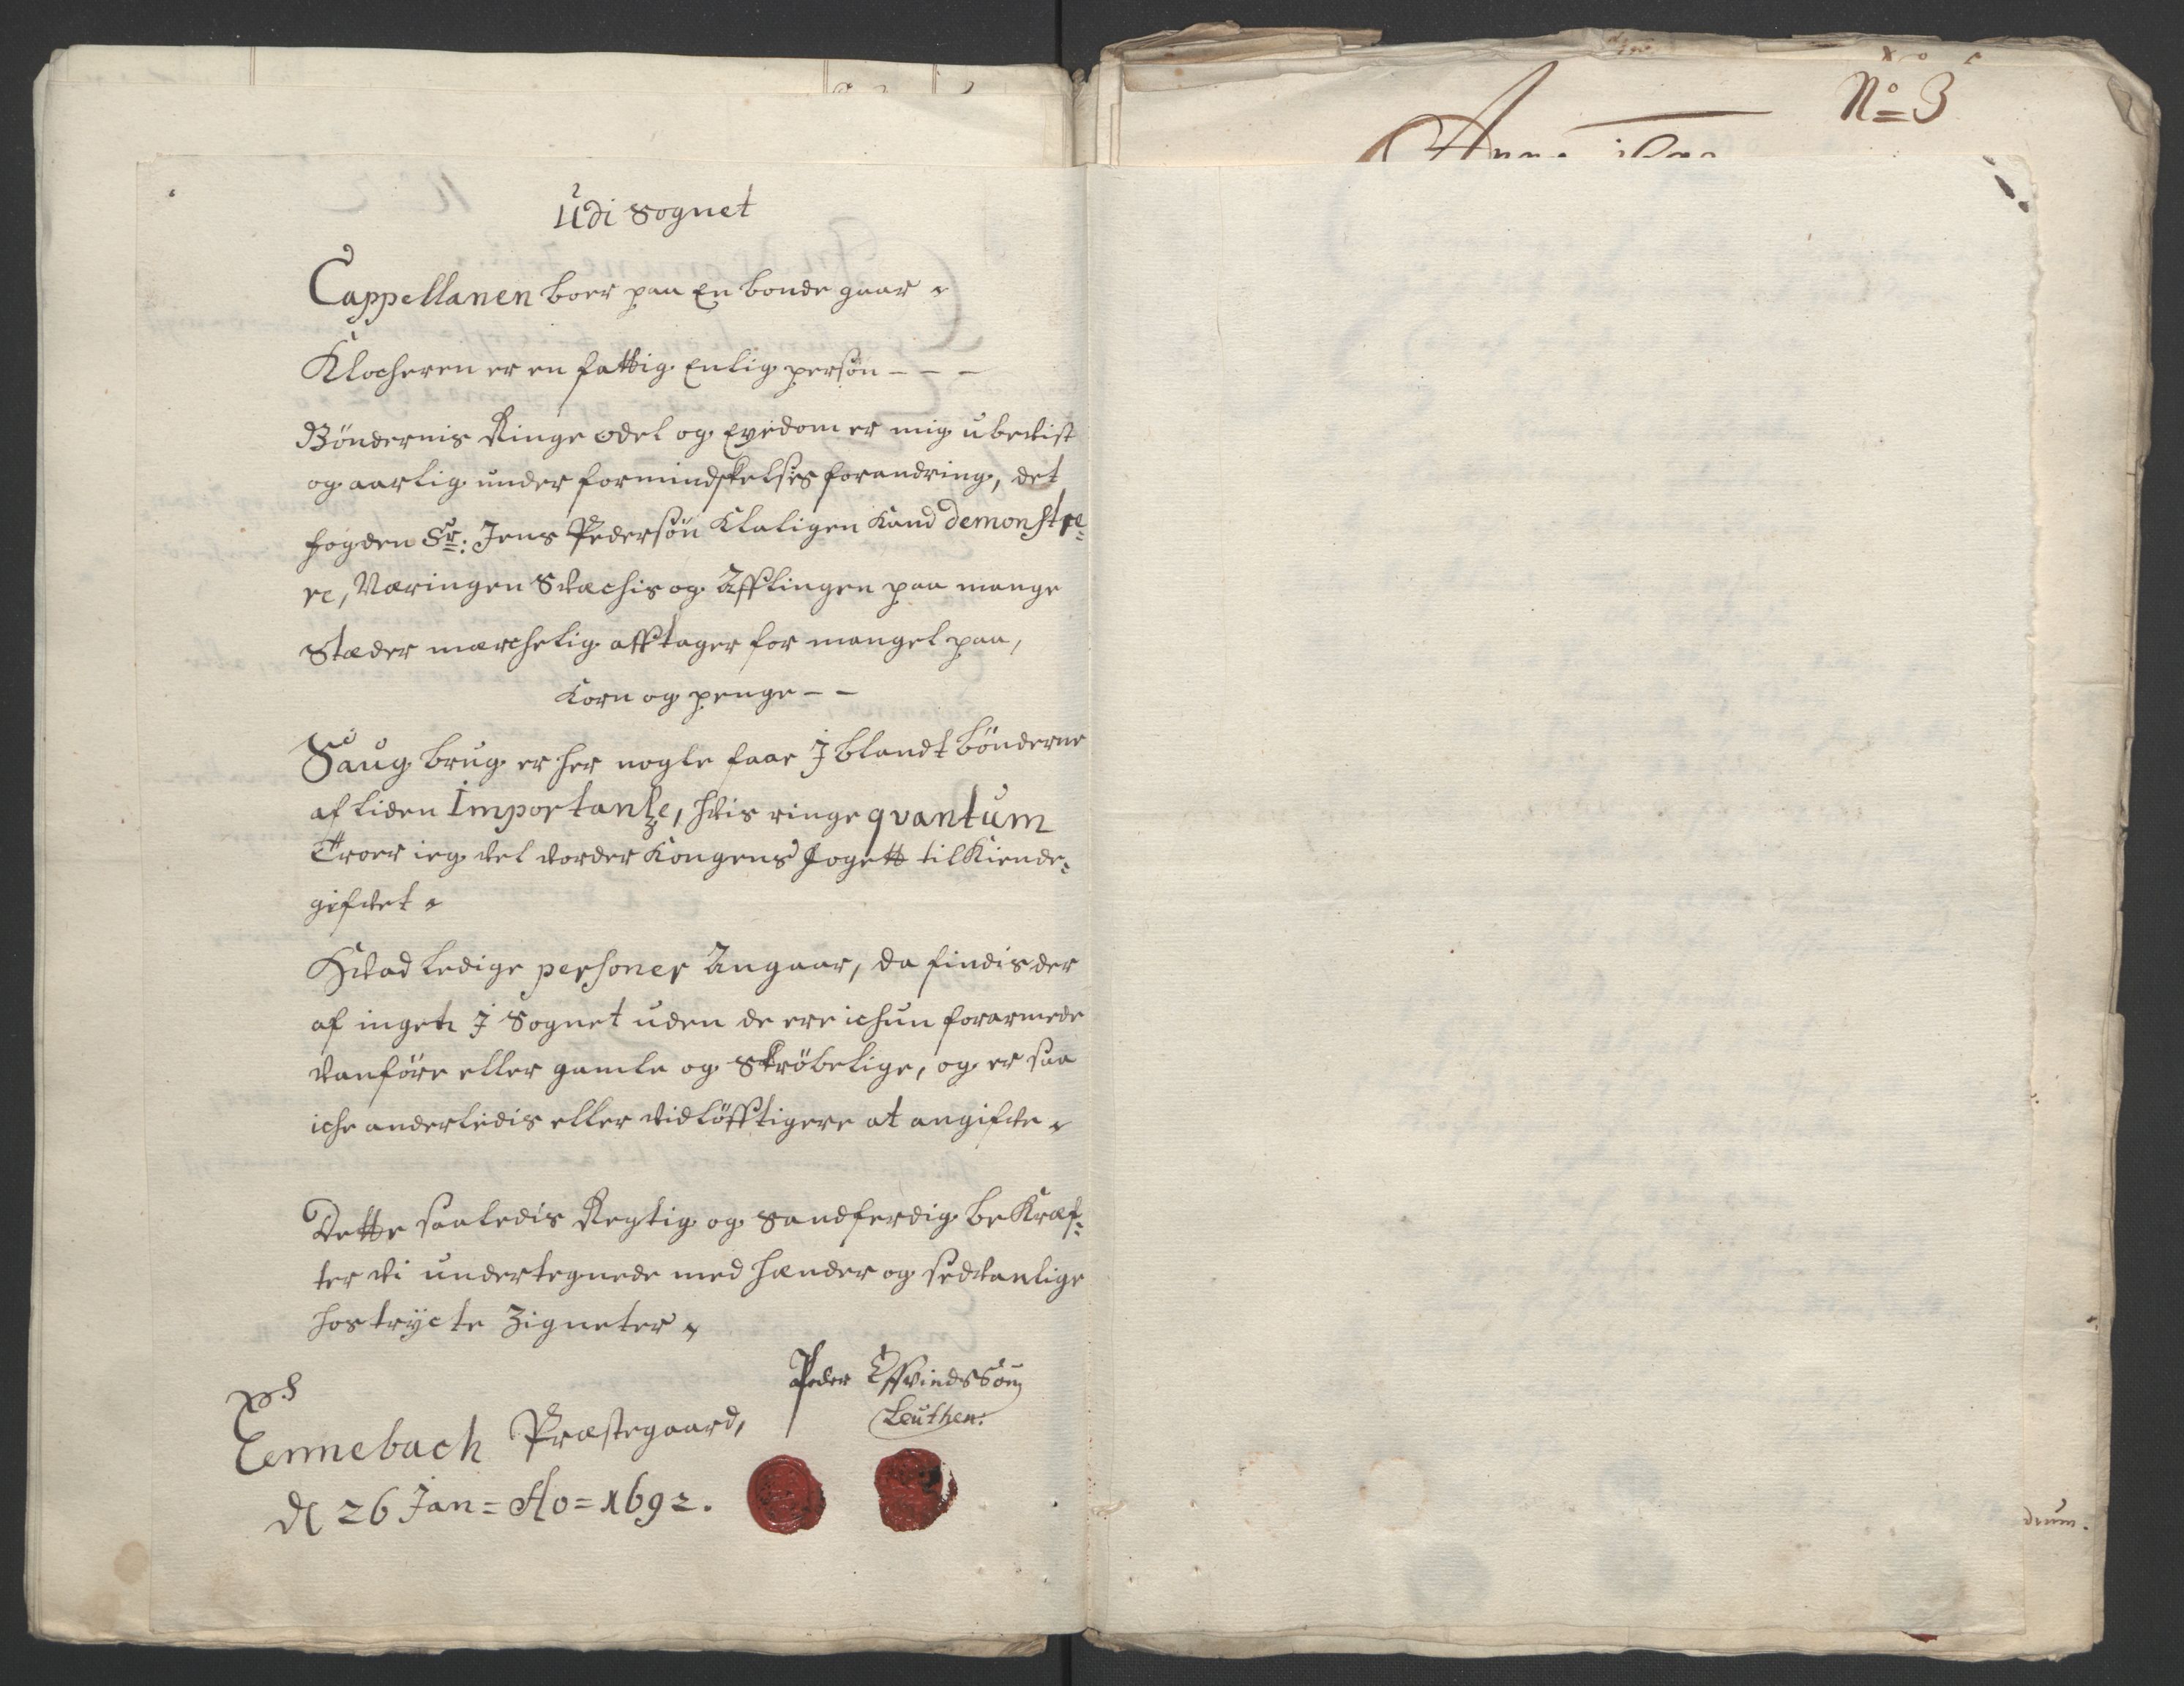 Udi Sognet
Cappellanen boer paa En bonde gaar
Klocheren er en fattig Enlig persön - - -
Böndernis Ringe odel og Eyedom er mig ubevist
og aarlig under formindskelsis forandring, det
fogden Sr: Jens Pedersön Klaligen Kand demonstre=
re, Næringen Svæchis og Afflingen paa mange
Stæder mærchelig afftager for mangel paa,
Korn og penge - -
Saug brug er her nogle faae J blandt bönderne
af liden Importantze, hvis ringe qvantum
Troer ieg vel vorder Kongens fogett tilKiende=
gifvet
Hvad ledige personer Angaar, da findis der
af ingen J Sognet uden de ere ichun forarmede
vanföre eller gamle og Skröbelige, og er saa
iche anderledis eller vidlöfftigere at angifve
Dette saaledis Regtig og Sandferdig beKræf=
ter vi undertegnede med hænder og sedvanlige
hostrycte Zigneter
Peder EffvindsSön
Leuthen.
Eennebach Præstegaard,
dl 26 Jan = Ao = 1692.
No 3
Anno